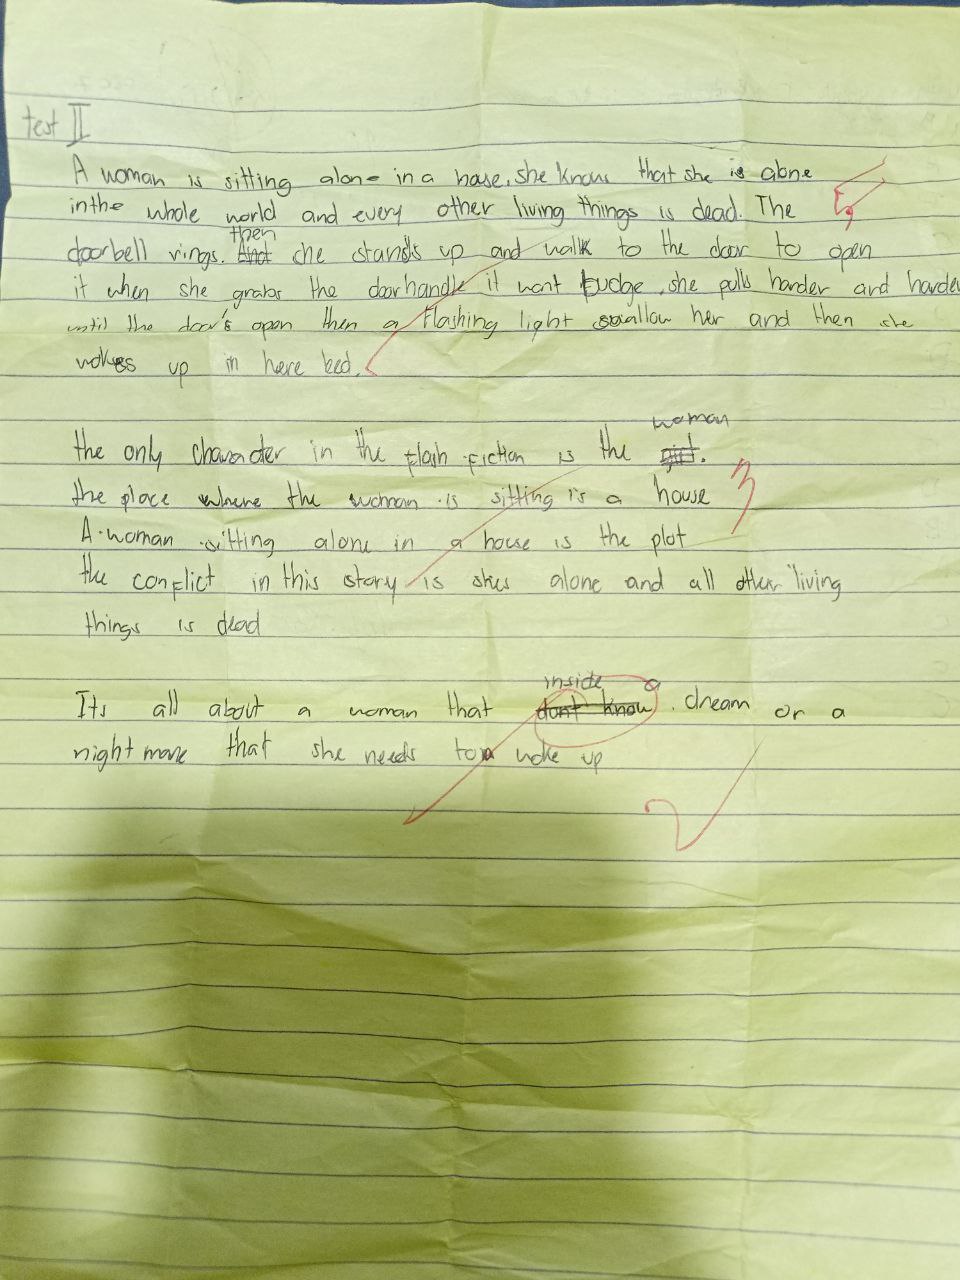 Test II
A woman is sitting alone in a house, she knows that she is alone
in the whole world and every other living things is dead. The
then
doorbell rings. And she stands up and walk to the door to open
it when she grabs the doorhandle it wont budge, she pulls harder and harder
until the door's open then a flashing light swallow her and then she
wakes up in here bed.
woman
the only character in the flash fiction is the girl.
the place where the woman is sitting is a house
3
A woman sitting alone in a house is the plot
the conflict in this story is shes alone and all other living
things is dead
inside a
Its all about a woman that dont know. dream or a
nightmare that she needs to wake up
2